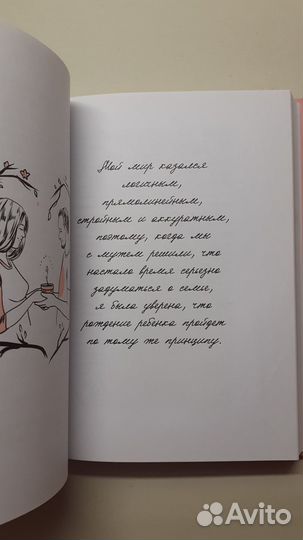 Мой мир казался
логичным,
прямолинейным,
стройным и аккуратным,
поэтому, когда мы
с мужем решили, что
настало время серьезно
задуматься о семье,
я была уверена, что
рождение ребенка пройдет
по тому же принципу.
Avito